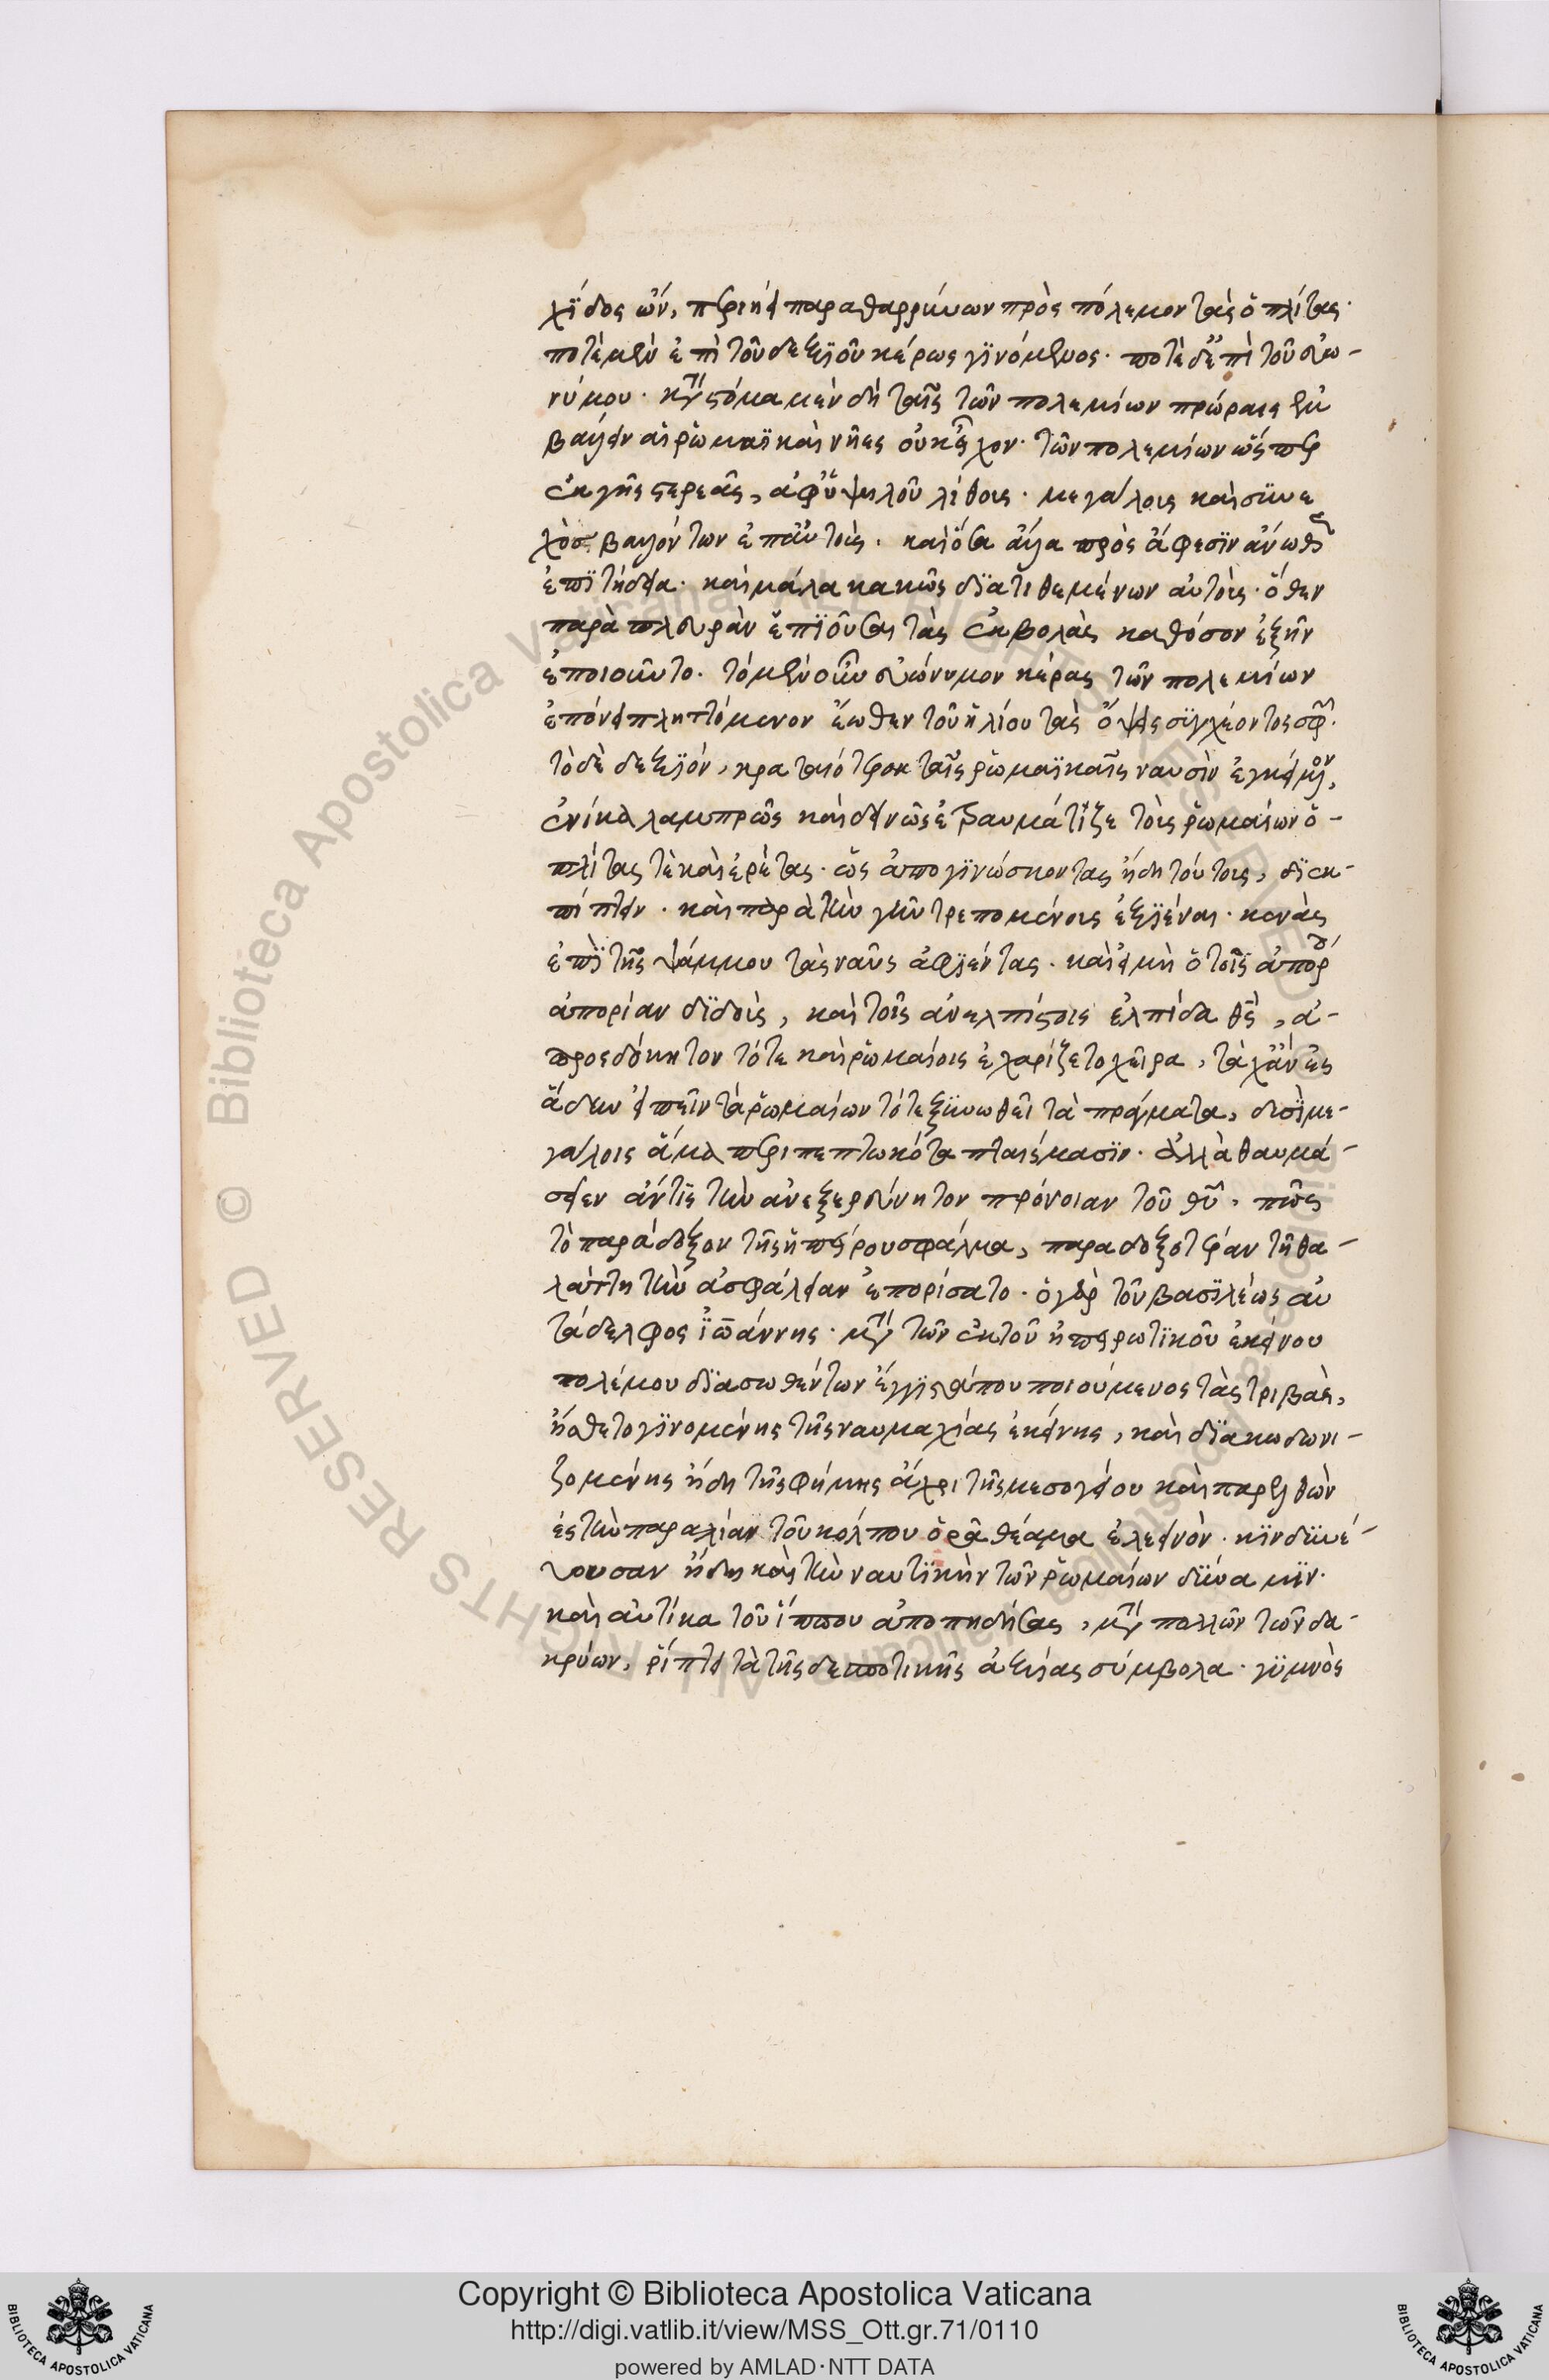 χΐδος ὢν, περιήει παραθαρρύνων πρὸς πόλεμον τοὺς ὁπλίτας·
ποτὲ μὲν ἐπὶ τοῦ δεξιοῦ κέρως γινόμενος· ποτὲ δ' ἐπὶ τοῦ εὐω-
νύμου· κατὰ στόμα μὲν δὴ ταῖς τῶν πολεμίων πρώραις ἐμ
βαλεῖν αἱ ῥωμαϊκαὶ νῆες οὐκ εἶχον· τῶν πολεμίων ὥσπερ
ἐκ γῆς στερεᾶς, ἀφ' ὑψηλοῦ λίθοις· μεγάλοις καὶ συνε
χῶς βαλλόντων ἐπ' αὐτοῖς· καὶ ὅσα ἄλλα πρὸς ἄφεσιν ἄνωθεν
ἐπιτήδεια· καὶ μάλα κακῶς διατιθεμένων αὐτοῖς· ὅθεν
παρὰ πλευρὰν ἐπιοῦσαι τὰς ἐκβολὰς καθόσον ἐξῆν
ἐποιοῦντο· τὸ μὲν οὖν εὐώνυμον κέρας τῶν πολεμίων
ἐπόνει πληττόμενον ἕωθεν τοῦ ἡλίου τὰς ὄψεις συγχέοντος σφῶν·
τὸ δὲ δεξιόν, κραταιότερον ταῖς ῥωμαϊκαῖς ναυσὶν ἐγκείμενον,
ἐνίκα λαμπρῶς καὶ δεινῶς ἐτραυμάτιζε τοῖς ῥωμαίων ὁ-
πλίτας τε καὶ ἐρέτας· ὡς ἀπογινώσκοντας ἤδη τούτοις, διεκ-
πίπτειν· καὶ παρὰ τὴν γῆν τρεπομένοις ἐξιέναι· κενὰς
ἐπὶ τῆς ψάμμου τὰς ναῦς ἀφιέντας· καὶ εἰ μὴ ὁ τοῖς ἀπόροις
ἀπορίαν διδοὺς, καὶ τοῖς ἀνελπίστοις ἐλπίδα θς, ἀ-
προσδόκητον τότε καὶ ῥωμαίοις ἐχαρίζετο χεῖρα, τάχ' ἂν ἐς
ᾅδην εἰπεῖν τὰ ῥωμαίων τότε ξυνωθεῖτο πράγματα, δυσὶ με-
γάλοις ἅμα περιπεπτωκότα πταίσμασιν· ἀλλὰ θαυμά-
σειεν ἄν τις τὴν ἀνεξερεύνητον πρόνοιαν τοῦ θυ, πῶς
τὸ παράδοξον τῆς ἠπείρου σφάλμα, παραδοξοτέραν τῇ θα-
λάττῃ τὴν ἀσφάλειαν ἐπορίσατο· ὁ γὰρ τοῦ βασιλέως αὐ
τάδελφος ἰωάννης· μετὰ τῶν ἐκ τοῦ ἠπειρωτικοῦ ἐκείνου
πολέμου διασωθέντων ἔγγιστά που ποιούμενος τὰς τριβὰς,
ᾔσθετο γινομένης τῆς ναυμαχίας ἐκείνης, καὶ διακωδωνι-
ζομένης ἤδη τῆς φήμης ἄχρι τῆς μεσογείου καὶ παρελθὼν
ἐς τὴν παραλίαν τοῦ κόλπου ὁρᾷ θέαμα ἐλεεινὸν· κινδυνεύ-
ουσαν ἤδη καὶ τὴν ναυτικὴν τῶν ῥωμαίων δύναμιν·
καὶ αὐτίκα τοῦ ἵππου ἀποπηδήσας, μετὰ πολλῶν τῶν δα-
κρύων, ῥίπτει τὰ τῆς δεσποτικῆς ἀξίας σύμβολα· γυμνὸς
Copyright © Biblioteca Apostolica Vaticana
http://digi.vatlib.it/view/MSS_Ott.gr.71/0110
powered by AMLAD·NTT DATA